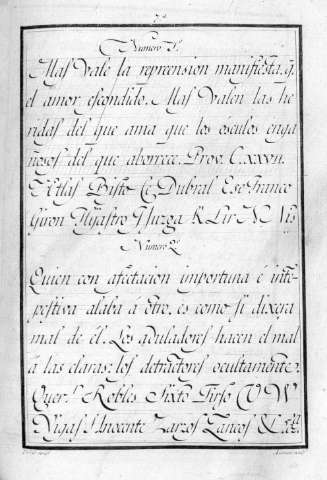 Numero 1.
Mas vale la repreension manifiesta, q.
el amor escondido. Mas valen las he
ridas del que ama que los osculos enga
ñosos del que aborrece. Prov. C. XXVII.
Dubral Ese Franco
Giron
Numero 2.
Quien con afectacion importuna é intem
pestiva alaba á otro, es como si dixera
mal de él. Los aduladores hacen el mal
á las claras: los detractores ocultamente.
Quer. Robles Sixto Tirso V W
Vigas Inocente Zarzos Zancos &